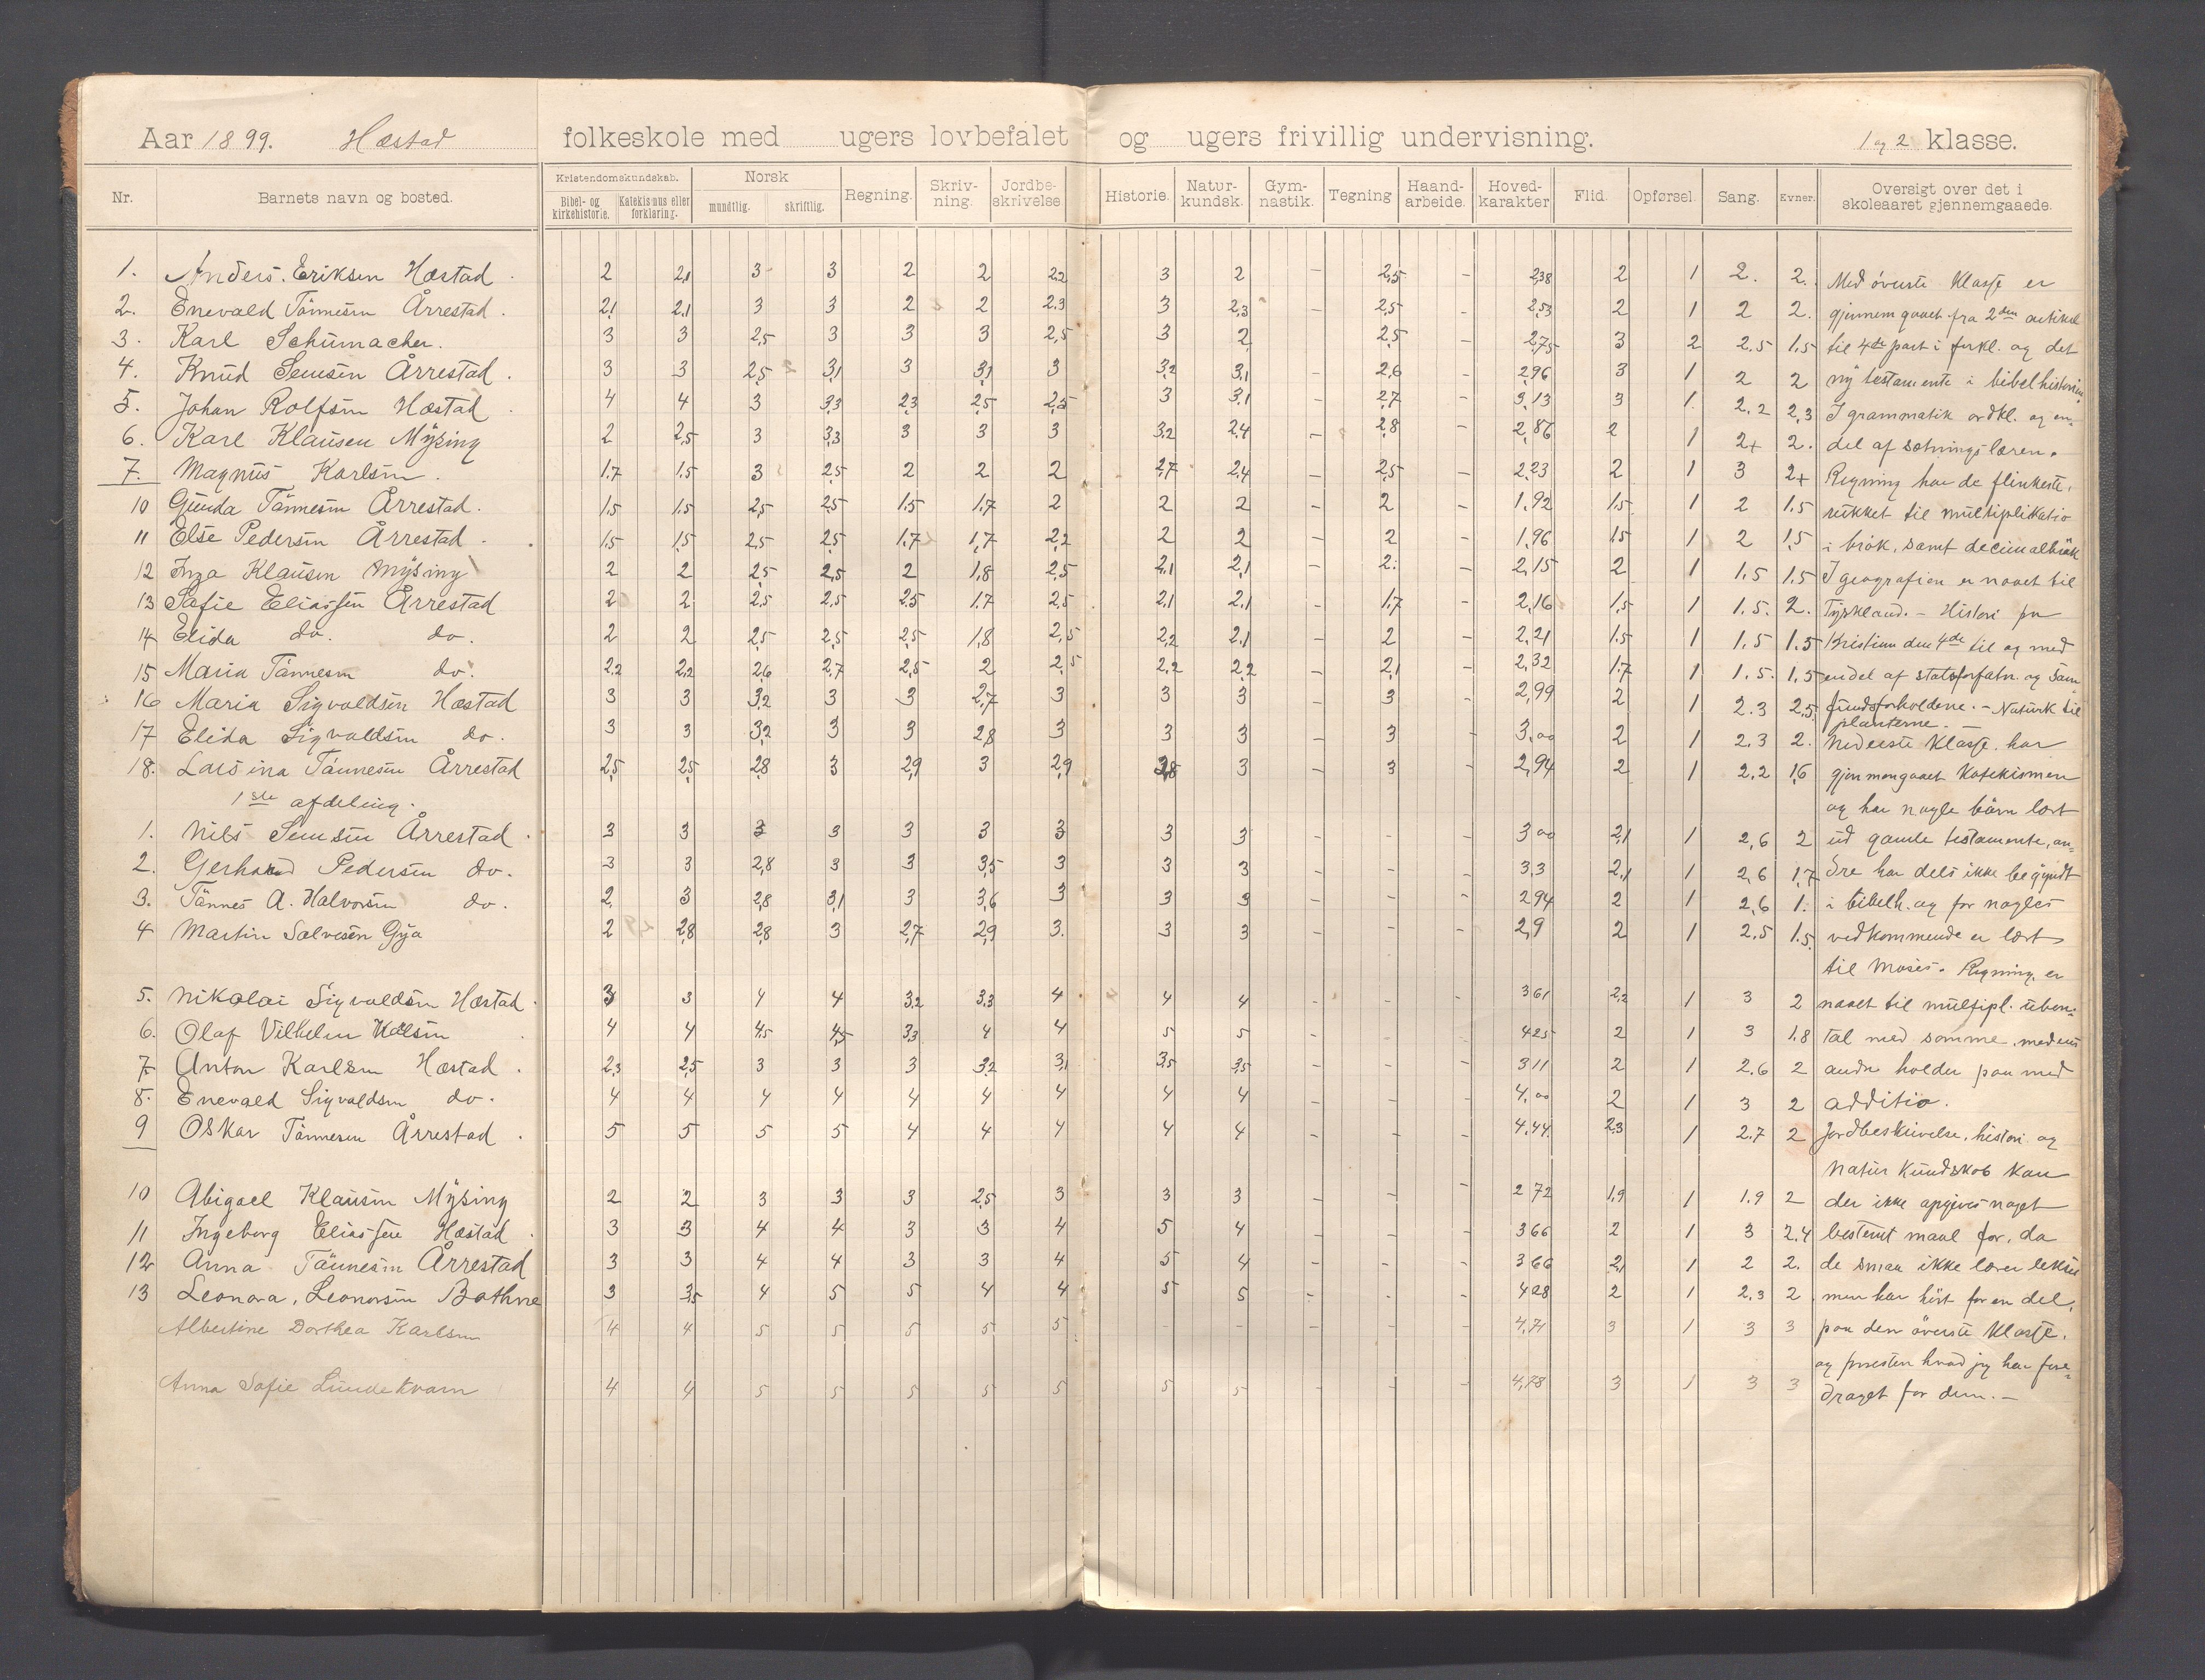 Aar 1899. Hæstad folkeskole med ugers lovbefalet og ugers frivillig undervisning. 1 og 2 klasse.
Nr. Barnets navn og bosted. Kristendomskundskab. Bibel- og kirkehistorie. Katekismus eller forklaring. Norsk mundtlig. skriftlig. Regning. Skriv-ning. Jordbe-skrivelse. Historie. Natur-kundsk. Gym-nastik. Tegning Haand-arbeide. Hoved-karakter Flid. Opførsel. Sang. Evner. Oversigt over det i skoleaaret gjennemgaaede.
1. Anders. Eriksen Hæstad. 2 2,1 3 3 2 2 2,2 3 2 - 2,5 - 2,38 2 1 2. 2. Med øverste klasse er
2. Enevald Tønnesen Årrestad. 2,1 2,1 3 3 2 2 2.3 3 2,3 - 2,5 - 2,53 2 1 2 2. gjennemgaaet fra 2den artikel
3. Karl Schumacher. 3 3 2,5 3 3 3 2,5 3 2 - 2,5 - 2,75 3 2 2.5 1.5 til 4de part i forkl. og det
4. Knud Semsen Årrestad. 3 3 2,5 3,1 3 3,1 3 3,2 3,1 - 2,6 - 2,96 3 1 2 2 ny testamente i bibelhistorien
5. Johan Rolfsen Hæstad. 4 4 3 3,3 2,3 2,5 2,5 3 3.1 2,7 - 3,13 3 1. 2.2 2,3 I grammatik ordkl. og en-
6. Karl Klausen Mysing 2 2,5 3 3,3 3 3 3 3,2 2,4 - 2,8 - 2,86 2 1 2+ 2. del af sætningslæren.
7. Magnus Karlsen. 1.7 1.5 3 2,5 2 2 2 2,7 2,4 - 2,5 - 2,23 2 1 3 2+ Regning har de flinkeste,
10 Gunda Tønnesen Årrestad. 1.5 1.5 2,5 2,5 1.5 1.7 2 2 2 - 2 - 1.92 1.5 1 2 1.5 rukket til multiplikatio
11 Else Pedersen Årrestad. 1.5 1.5 2,5 2,5 1.7 1,7 2,2 2 2 - 2 - 1,96 1.5 1 2 1,5 i brøk, samt decimalbrøk
12 Inga Klausen Mysing 2 2 2,5 2,5 2 1,8 2,5 2,1 2,1 - 2. - 2,15 2 1 1.5 1.5 I geografien er naaet til
13 Sofie Eliassen Årrestad 2 2 2,5 2,5 2,5 1.7 2,5 2,1 2.1 - 1.7 - 2,16 1.5 1 1.5. 2. Tyskland. - Histori fra
14 Elida do. do. 2 2 2,5 2,5 2,5 1,8 2,5 2,2 2.1 - 2 - 2,21 1.5 1 1.5 1.5 Kristian den 4de til og med
15 Maria Tønnesen do. 2,2 2,2 2,6 2,7 2,5 2 2,5 2,2 2,2 - 2,1 - 2,32 1.7 1 1.5. 1.5 endel af statsforfatn. og sam-
16 Maria Sigvaldsen Hæstad 3 3 3,2 3 3 2,7 3 3 3 - 3 - 2,99 2 1 2.3 2,5 fundsforholdene. - Naturk til
planterne. -
17 Elida Sigvaldsen do. 3 3 3,2 3 3 2,8 3 3 3 - 3 - 3,00 2 1 2.3 2. Nederste klasse har
18. Larsina Tønnesen Årrestad 2,5 2,5 2,8 3 2,9 3 2,9 2,8 3 - 3 - 2,94 2 1 2,2 1,6 gjennemgaaet katekismen
1ste afdeling. og har nogle børn lært
1. Nils Semsen Årrestad. 3 3 3 3 3 3 3 3 3 - - - 3,00 2,1 1 2,6 2 ud gamle testamente, an-
2. Gerhard Pedersen do. 3 3 2,8 3 3 3,5 3 3 3 - - - 3.3 2,1 1 2,6 1,7 dre har dels ikke begyndt
3. Tønnes A. Halvorsen do. 2 3 2,8 3,1 3 3,6 3 3 3 - - - 2.94 2 1 2,6 1. i bibelh. og for nogles
4 Martin Salvesen Gya 2 2,8 2,8 3 2,7 2,9 3. 3 3 - - - 2,9 2 1 2.5 1.5. vedkommende er lært
til Moses. Regning er
5. Nikolai Sigvaldsen Hæstad. 3 3 4 4 3,2 3,3 4 4 4 - - - 3 61 2,2 1 3 2 naaet til multipl. uben.
6. Olaf Vilhelm Kalsen 4 4 4,5 4,5 3,3 4 4 5 5 - - - 4 25 2 1 3 1.8 tal med somme, medens
7 Anton Karlsen Hæstad. 2,3 2,5 3 3 3 3,2 3,1 3,5 3,5 - - - 3 11 2 1 2.6 2 andre holder paa med
8. Enevald Sigvaldsen do. 4 4 4 4 4 4 4 4 4 - - - 4,00 2 1 3 2 additio.
9 Oskar Tønnesen Årrestad. 5 5 5 5 4 4 4 4 4 - - - 4.44 2,3 1 2.7 2 Jordbeskrivelse, histori og
naturkundskab kan
10 Abigael Klausen Mysing 2 2 3 3 3 2,5 3 3 3 - - - 2 72 1,9 1 1.9 2 der ikke opgives noget
11 Ingeborg Eliassen Hæstad. 3 3 4 4 3 3 4 5 4 - - - 3 66 2 1 3 2.4 bestemt maal for, da
12 Anna Tønnesen Årrestad 3 3 4 4 3 3 4 5 4 - - - 3 66 2,1 1 2 2. de smaa ikke lærer lekser
13 Leonora, Leonorsen Bothne 3 3,5 4 5 5 4 4 5 5 - - - 4 28 2 1 2,3 2 men har hørt for en del,
Albertine Dorthea Karlsen 4 4 5 5 5 5 5 - - - - - 4,71 3 1 3 3 paa den øverste klasse.
og hvad jeg har fore-
Anna Sofie Lundekvam 4 4 5 5 5 5 5 5 5 - - - 4,78 3 1 3 3 draget for dem. -